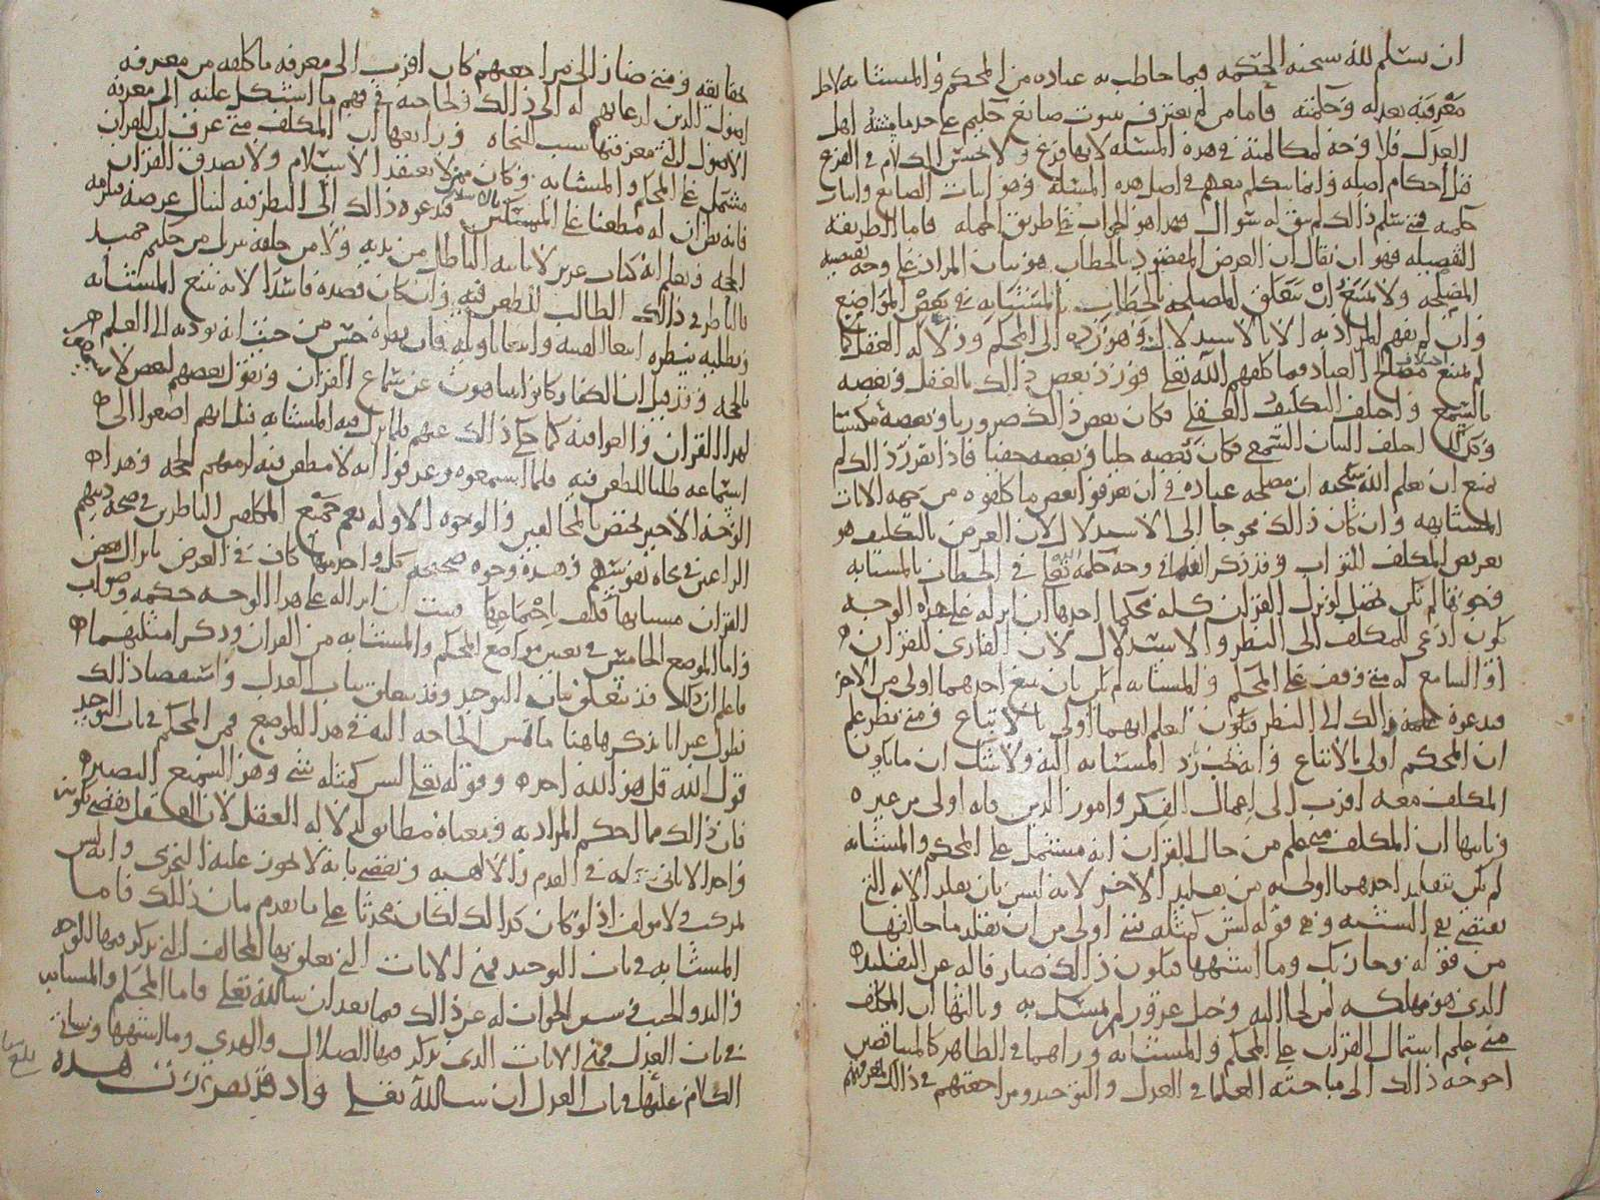 ان يسلم لله سبحنه الحكمه فيما خاطب به عباده من المحكم والمتشابه لاجل
معرفته بعدله وحكمته فاما من لم يعترف بثبوت صانع حكيم على حد ما يثبته اهل
العدل فلا وجه لمكالمته في هذه المسئله لانها فرع ولا يحسن الكلام في الفرع
قبل احكام اصله وانما يتكلم معهم في اصل هذه المسئله وهو اثبات الصانع واثبات
حكمته فمتى سلم ذلك لم يبق له سؤال فهذا هو الجواب على طريق الجمله فاما الطريقه
التفصيله فهو ان يقال ان الغرض المقصود بالخطاب هو بيان المراد على وجه تقتضيه
المصلحه ولا يمتنع ان تتعلق المصلحه بالخطاب بالمتشابه في بعض المواضع
وان لم يفهم المراد به الا بالاستدلال وهو رده الى المحكم ودلاله العقل كما
لم يمتنع اختلاف مصالح العباد فيما كلفهم الله تعالى فورد بعض ذلك بالعقل وبعضه
بالسمع واختلف التكليف العقلي فكان بعض ذلك ضروريا وبعضه مكتسبا
وكذلك اختلف البيان السمعي فكان بعضه جليا وبعضه خفيا فاذا تقرر ذلك لم
يمتنع ان يعلم الله سبحنه ان مصلحه عباده في ان يعرفوا بعض ما كلفوه من جهه الايات
المتشابهه وان كان ذلك محوجا الى الاستدلال لان الغرض بالتكليف هو
تعريض المكلف للثواب وقد ذكر العلما في وجه حكمه الله تعالى في الخطاب بالمتشابه
وجوها لم تكن تحصل لو نزل القران كله محكما احدها ان انزله على هذا الوجه
يكون ادعى للمكلف الى النظر والاستدلال لان القارئ للقران
او السامع له متى وقف على المحكم والمتشابه لم يكن بان يتبع احدهما اولى من الاخر
فيدعوه ذلك الى النظر ليعلم ايهما اولى بالاتباع فمتى نظر علم
ان المحكم اولى بالاتباع وانه يجب رد المتشابه اليه ولا شك ان ما يكون
المكلف معه اقرب الى اعمال الفكر وامور الدين فانه اولى من غيره
وثانيها ان المكلف متى علم من حال القران انه مشتمل على المحكم والمتشابه
لم يكن تقليد احدهما اولى به من تقليد الاخر لانه ليس بان يقلد الايه التي
تقتضي نفي التشبيه وهي قوله ليس كمثله شي اولى من ان يقلد ما خالفها
من قوله وجا ربك وما اشبهها فيكون ذلك صارفا له عن التقليد
الذي هو مهلكه لمن لجا اليه وحبل غرور لم يمتسك به وثالثها ان المكلف
متى علم اشتمال القران على المحكم والمتشابه وراهما في الظاهر كالمتناقضين
احوجه ذلك الى مباحثه العلما في العدل والتوحيد ومراجعتهم في ذلك لمعرفتهم
حقايقه ومتى صار الى مراجعتهم كان اقرب الى معرفه ما كلفه من معرفه
اصول الدين لحاجته في فهم ما استشكل عليه الى معرفه
الاصول التي معرفتها سبب النجاه ورابعها ان المكلف متى عرف ان القران
مشتمل على المحكم والمتشابه وكان ممن لا يعتقد الاسلام ولا يصدق القران
فانه يظن ان له مطعنا على المسلمين فيدعوه ذلك الى النظر فيه لينال غرضه
الحجه ويعلم انه كتاب عزيز لا ياتيه الباطل من بين يديه ولا من خلفه تنزيل من حكيم حميد
فالناظر في ذلك الطالب للطعن فيه وان كان قصده فاسدا لانه يتبع المتشابه
ويطلبه بنظره ابتغا الفتنه وابتغا تاويله فان نظره حسن من حيث انه يوديه الى العلم
بالحجه وقد قيل ان الكفار كانوا يتناهون عن سماع القران ويقول بعضهم لبعض لا تسمعوا
لهذا القران والغوا فيه كما حكى ذلك عنهم فلما نزل فيه المتشابه اصغوا الى
استماعه طلبا للطعن فيه فلما استمعوه وعرفوا انه لا مطعن فيه لزمتهم الحجه وهذا
الوجه الاخير يختص بالمخالفين والوجوه الاوله تعم جميع المكلفين الناظرين في صحه دينهم
الراغبين في نجاه نفوسهم وهذه وجوه صحيحه كل واحد منها كاف في الغرض بانزال بعض
القران متشابها فكيف باجتماعها فثبت ان انزاله على هذا الوجه حكمه وصواب
واما الموضع الخامس في تعيين مواضع المحكم والمتشابه من القران وذكر امثلتهما
فاعلم ان ذلك قد يتعلق بباب التوحيد وقد يتعلق بباب العدل واستقصا ذلك
يطول غير انا نذكر هاهنا ما تمس الحاجه اليه في هذا الموضع فمن المحكم في باب التوحيد
قول الله قل هو الله احد وقوله تعالى ليس كمثله شي وهو السميع البصير
فان ذلك مما احكم المراد به ومعناه مطابق لدلاله العقل لان العقل يقضي بكونه
واحدا لا ثاني له في القدم والالاهيه ويقضي بانه لا يجوز عليه التجزي وانه ليس
بمركب ولا مولف اذ لو كان كذلك لكان محدثا على ما تقدم بيان ذلك فاما
المتشابه في باب التوحيد فمن الايات التي تعلق بها المخالف التي نذكر فيها الوجه
واليد والجنب في سنن الجواب له عن ذلك فيما بعد ان شا الله تعالى فاما المحكم والمتشابه
في باب العدل فمن الايات الذي نذكر فيها الضلال والهدي وما اشبهها وسياتي
الكلام عليها في باب العدل ان شا الله تعالى واذ قد تقررت هذه
بلغ سماعا